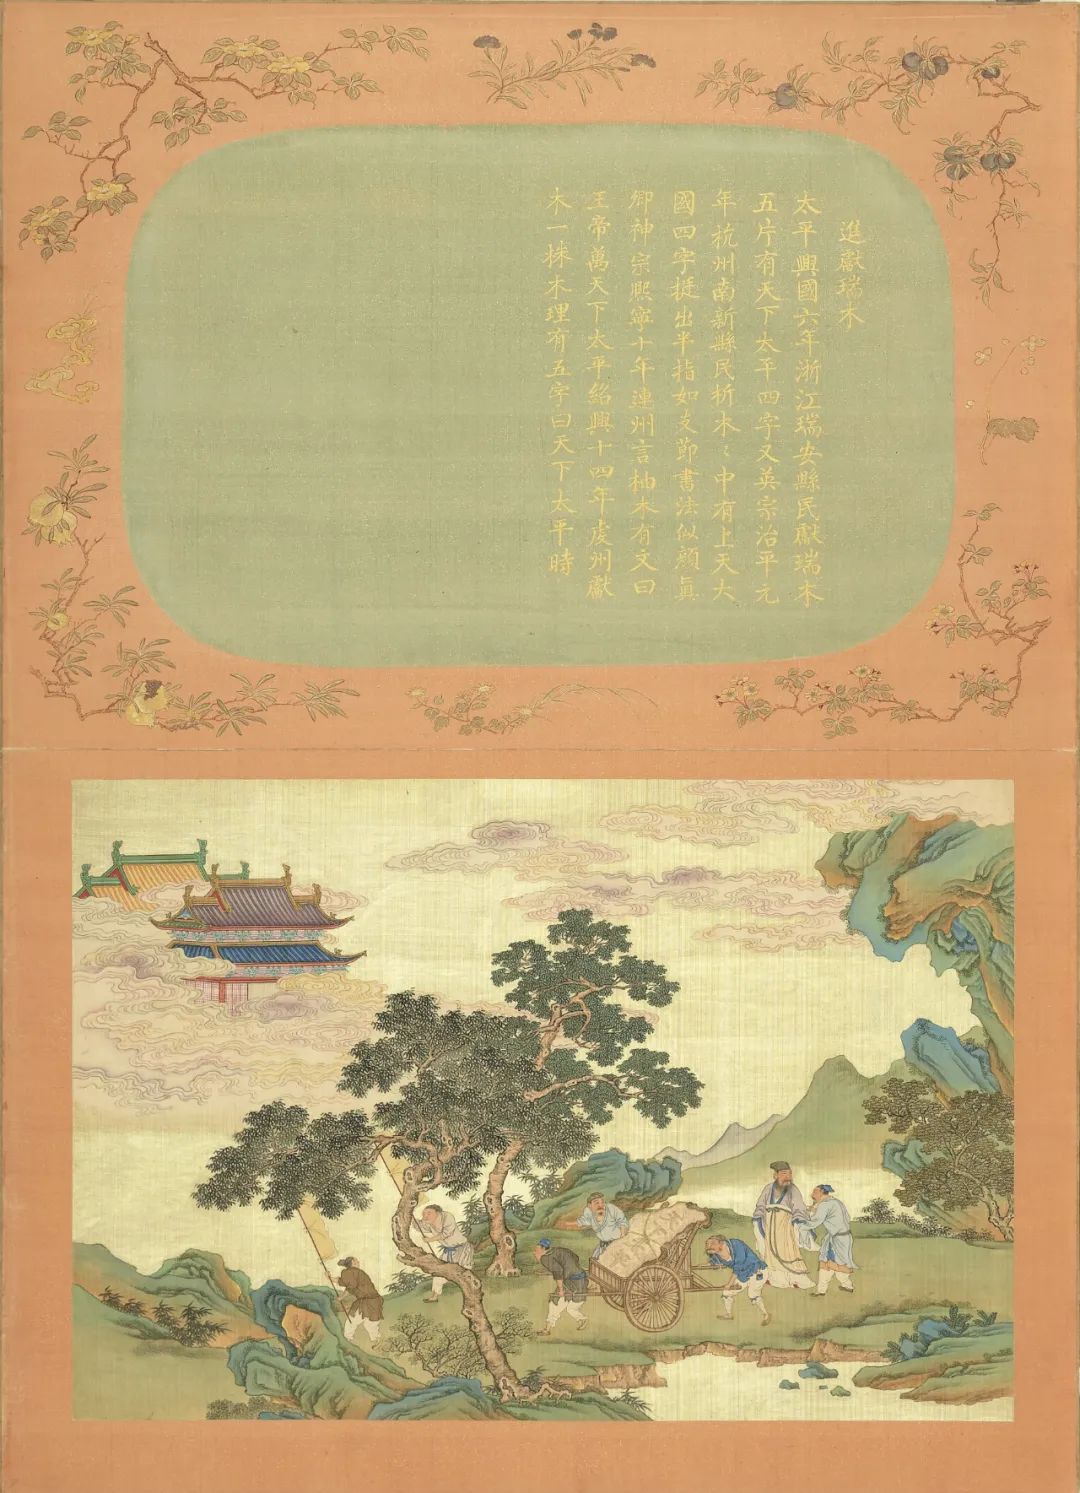 進獻瑞木
太平興國六年浙江瑞安縣民獻瑞木
五片有天下太平四字又英宗治平元
年杭州南新縣民析木〻中有上天大
國四字挺出半指如支節書法似顏真
卿神宗熙寧十年連州言柚木有文曰
王帝萬天下太平紹興十四年虔州獻
木一株木理有五字曰天下太平時